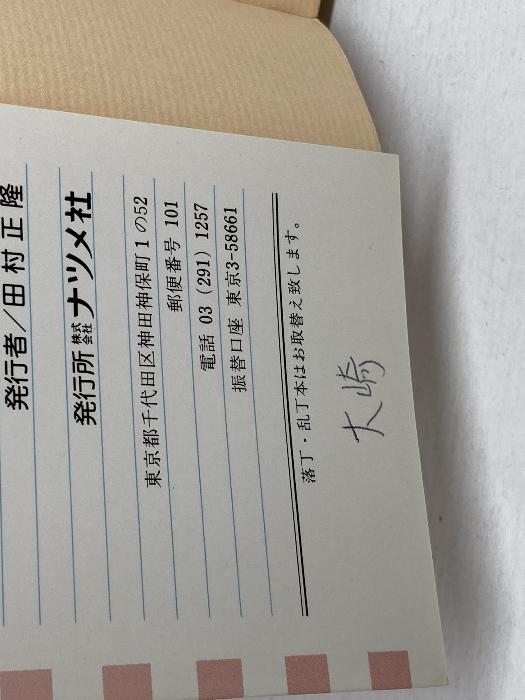 発行者/田村正隆
発行所 株式会社ナツメ社
東京都千代田区神田神保町1の52
郵便番号 101
電話 03(291)1257
振替口座 東京3-58661
落丁・乱丁本はお取替え致します。
大崎